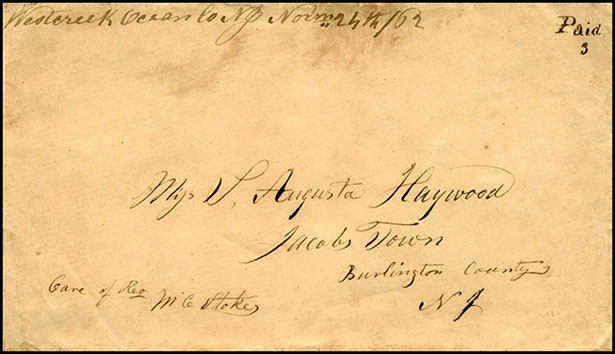 Westcreek Ocean Co NJ Novm 24th/62
Paid
3
Miss S. Augusta Haywood
Jacobs Town
Burlington County
N J
Care of Rev
Mc Stokes